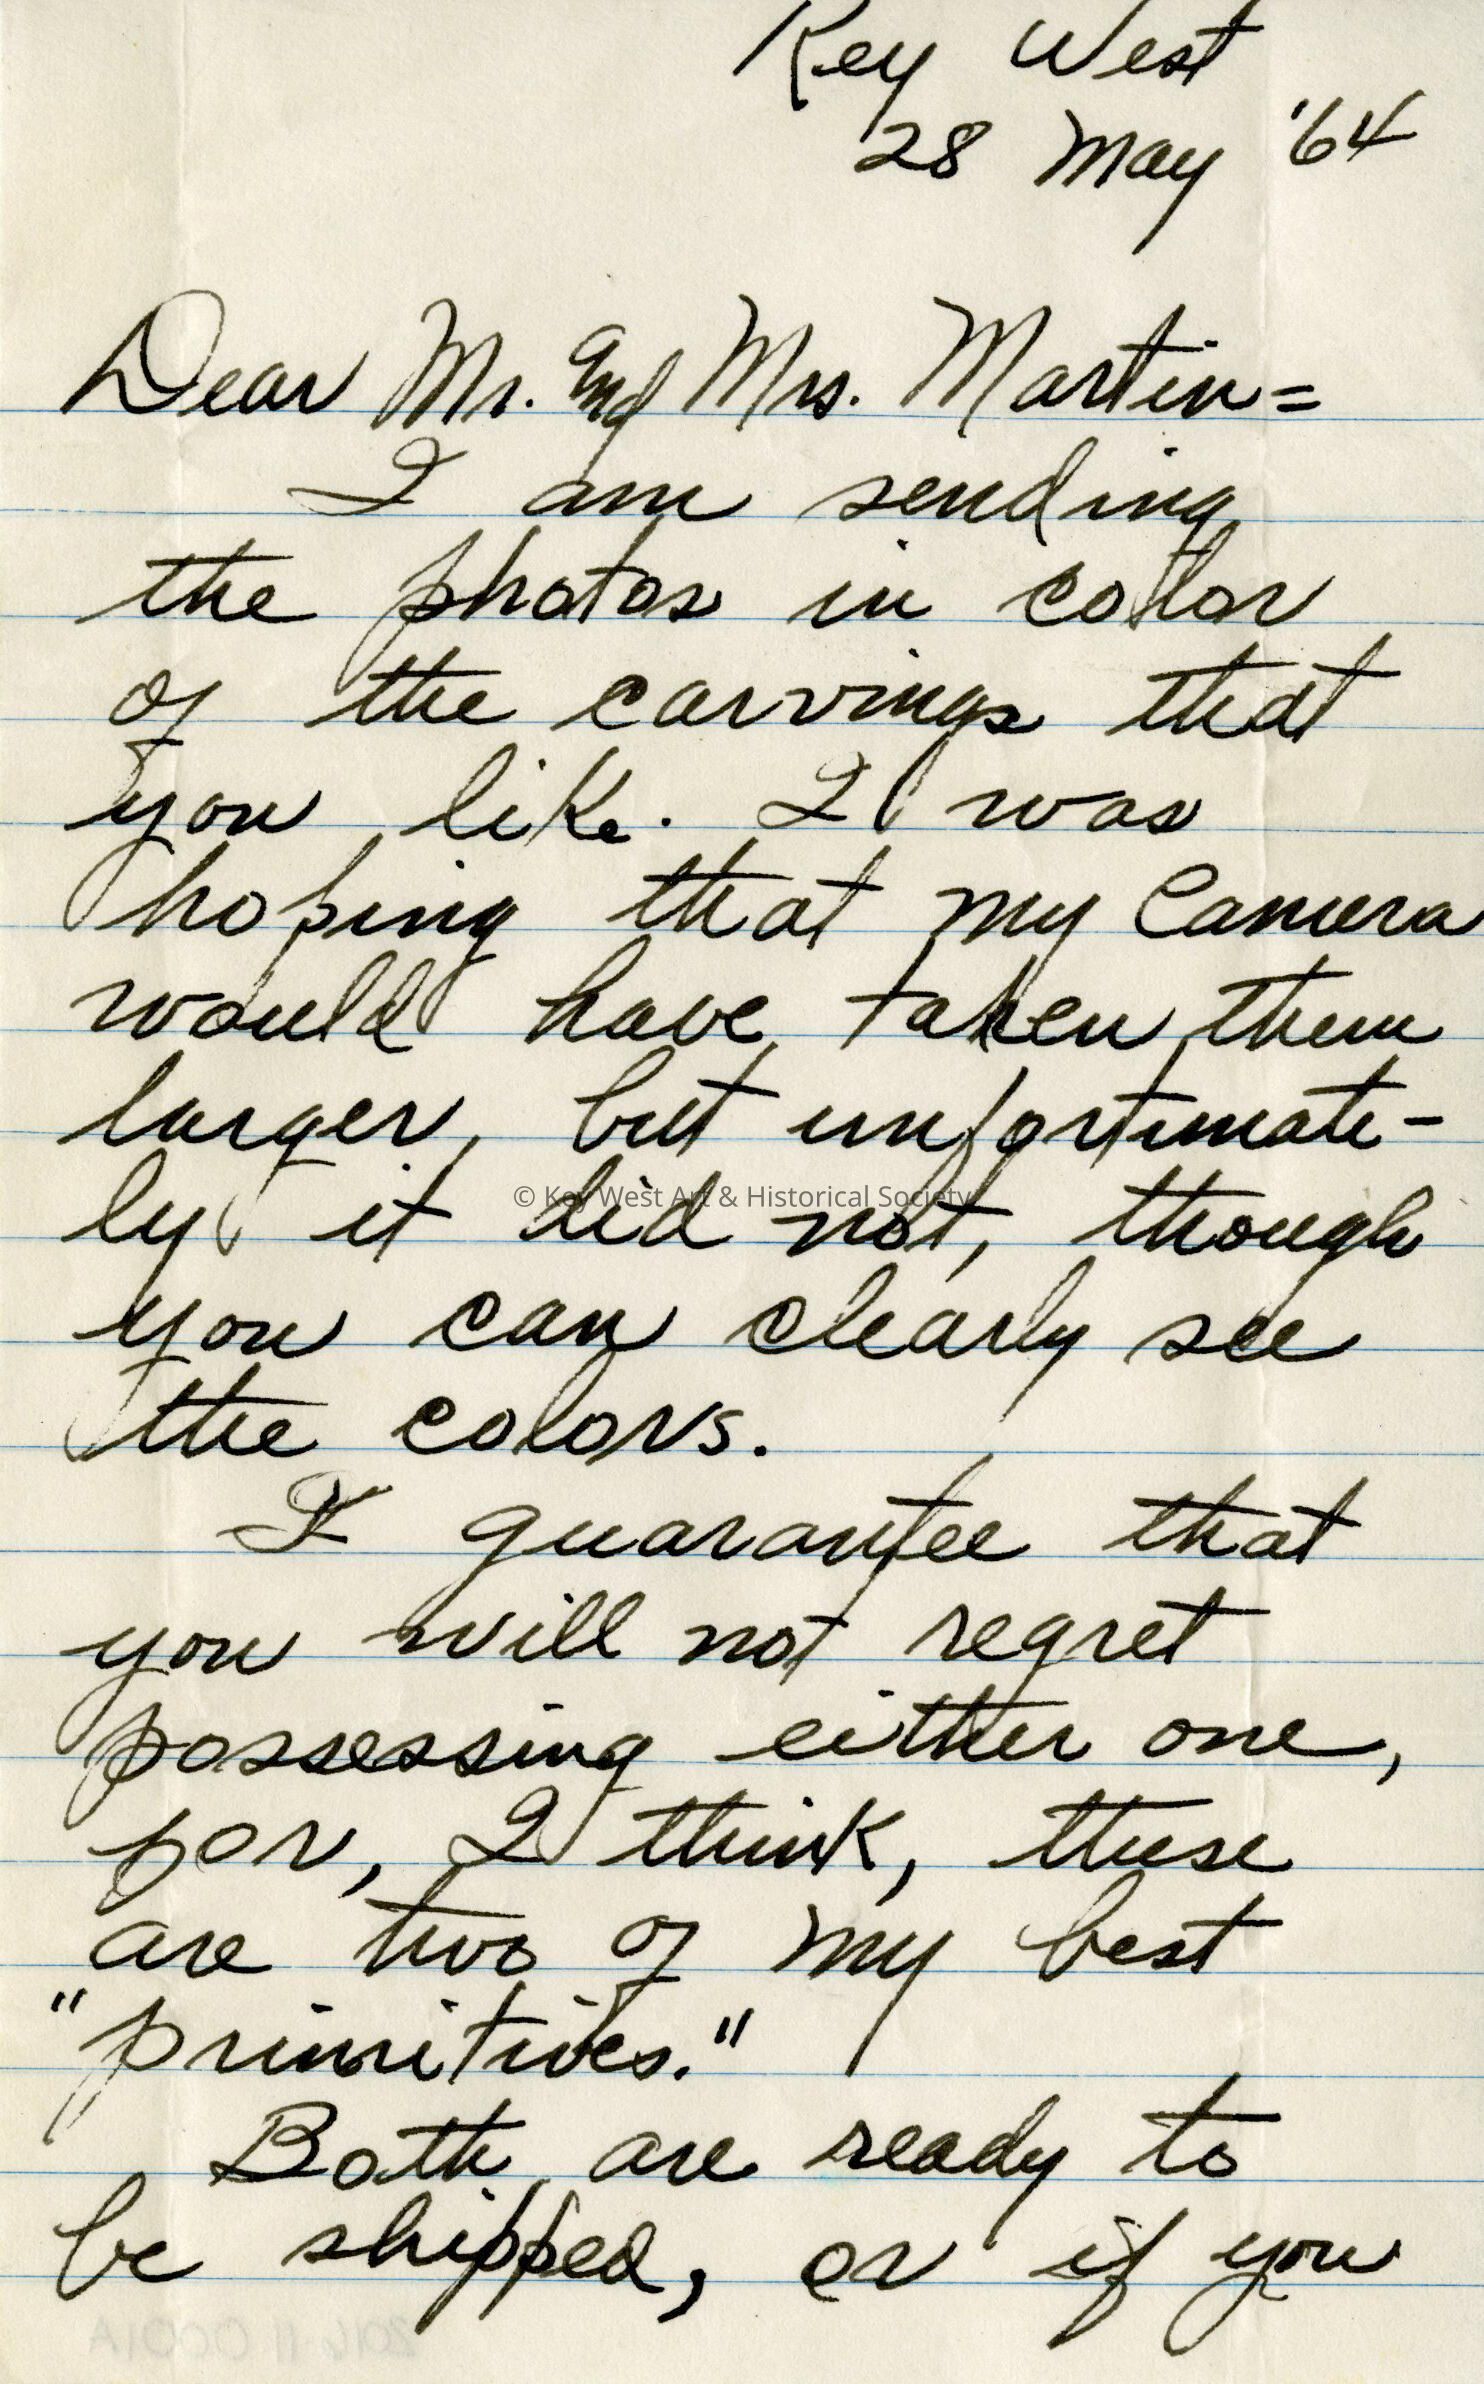 Key West
28 May '64
Dear Mr. and Mrs. Martin=
I am sending
the photos in color
of the carvings that
you like. I was
hoping that my Camera
would have taken them
larger, but unfortunate-
ly it did not, though
you can clearly see
the colors.
I guarantee that
you will not regret
possessing either one,
for, I think, these
are two of my best
"primitives."
Both are ready to
be shipped, or if you
© Key West Art & Historical Society